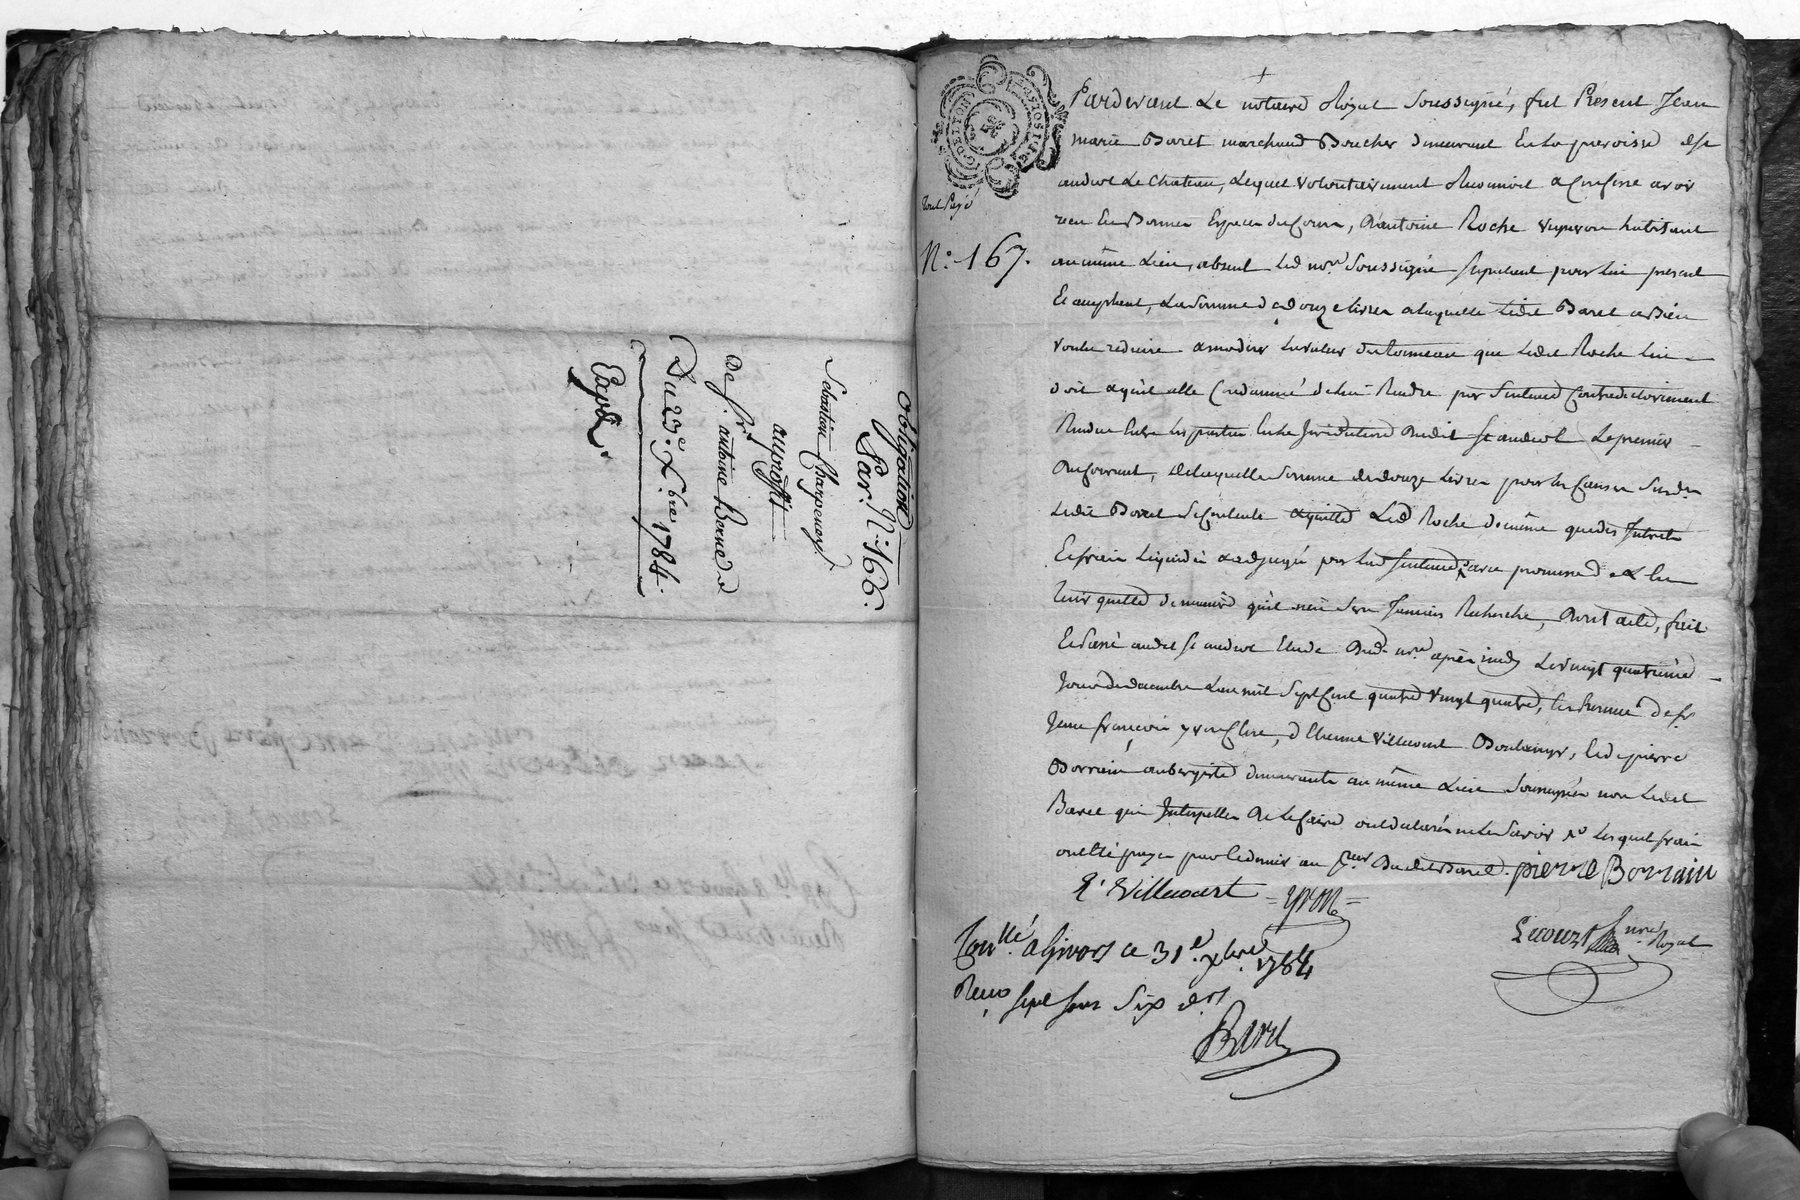 obligation
Par. N.° 166.
Sebastien Charpenay
auproffit
De Sr. antoine Berne
Du 23.e Xbre 1784.
Expd
G. DE LYON
tout Payé
N.° 167.
Pardevant Le notaire Royal Soussigné, fut Présent Jean
marie Baret marchand Boucher demeurant En la paroisse de St
andéol Le Chateau, Lequel volontairement Reconnoit & Confesse avoir
reçu En Bonnes Espèces du Cours, D'antoine Roche vigneron habitant
au même Lieu, absent Led. nore. Soussigné stipulant pour lui présent
Et acceptant, La Somme de douze livres a laquelle Ledit Baret a Bien
voulu réduire & modérer La valeur du tonneau que Ledit Roche lui
doit & qu'il a été Condamné de lui Rendre par Sentence Contradictoirement
Rendue Entre les parties En la Juridiction dudit St andeol Le premier
du Courant, De laquelle Somme de douze Livres pour les Causes Susd.es
Ledit Baret Se Contente & quitte Led. Roche de même que des Intérêts
Et frais Liquidés & adjugés par lad. Sentence, avec promesse de Le
tenir quitte de manière qu'il n'en Sera Jamais Recherché, Dont acte, fait
Et Passé audit St andéol Etude Dud. nore. après midy Le vingt quatrième
Jour de décembre L'an mil Sept Cent quatre vingt quatre, En présence de Sr
Jean françois yvon Clerc, d'Etienne Villecourt Boulanger, Et de pierre
Borrain aubergiste demeurants au même Lieu Soussignés non Ledit
Baret qui Interpellé De le faire a déclaré ne Le Savoir Lesquels frais
ont Été payés par Ledernier au Dudit Baret. pierre Borrain
E. Villecourt = yvon =
Lecourt nre Royal
Conllé a Givors ce 31e. xbre 1784
Reçu Sept Sous Six drs
Baret